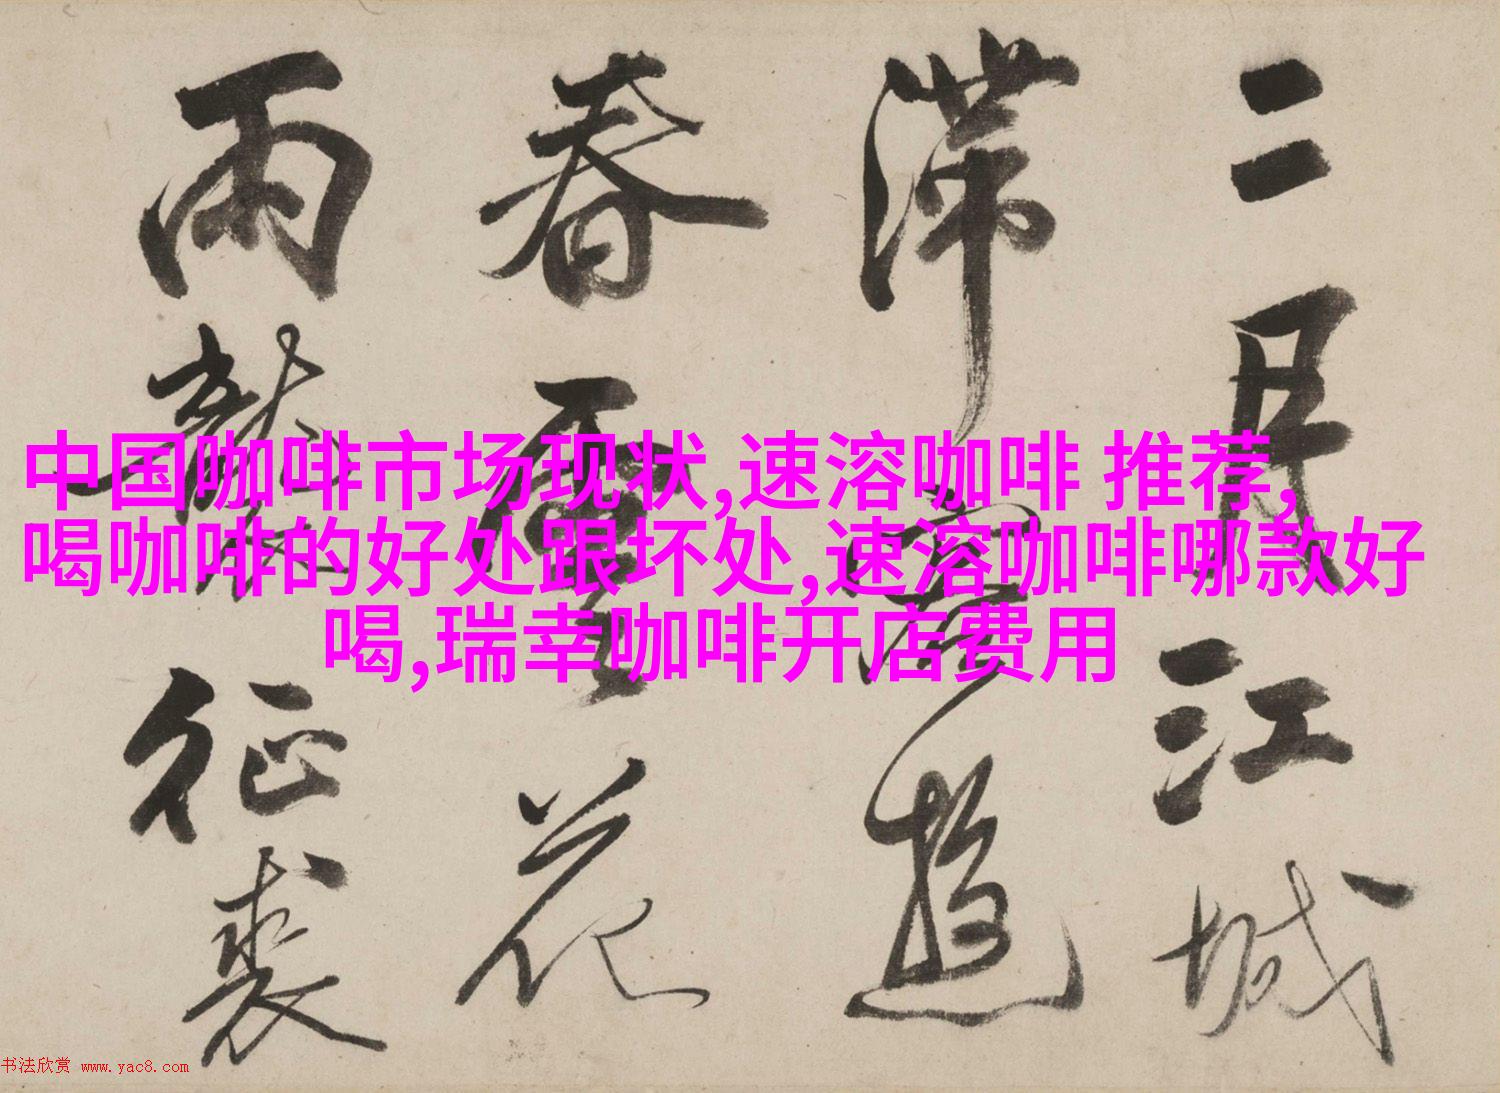 二月江城
滞客游
春云花
雨龙征裘
中国咖啡市场现状,速溶咖啡 推荐,
喝咖啡的好处跟坏处,速溶咖啡哪款好
喝,瑞幸咖啡开店费用
书法欣赏 www.yac8.com